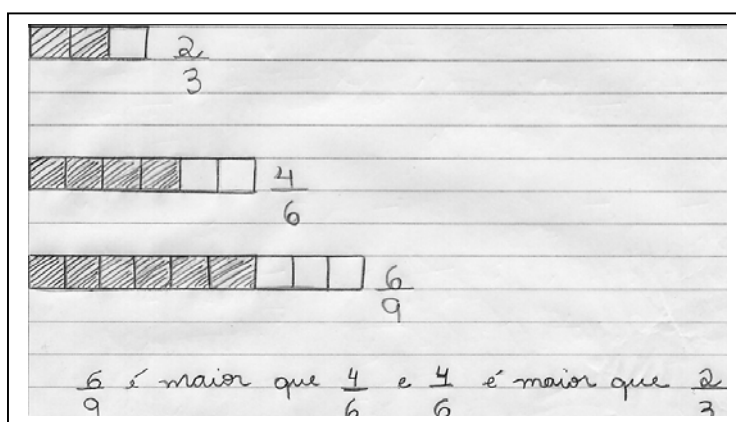 2/3
4/6
6/9
6/9 é maior que 4/6 e 4/6 é maior que 2/3